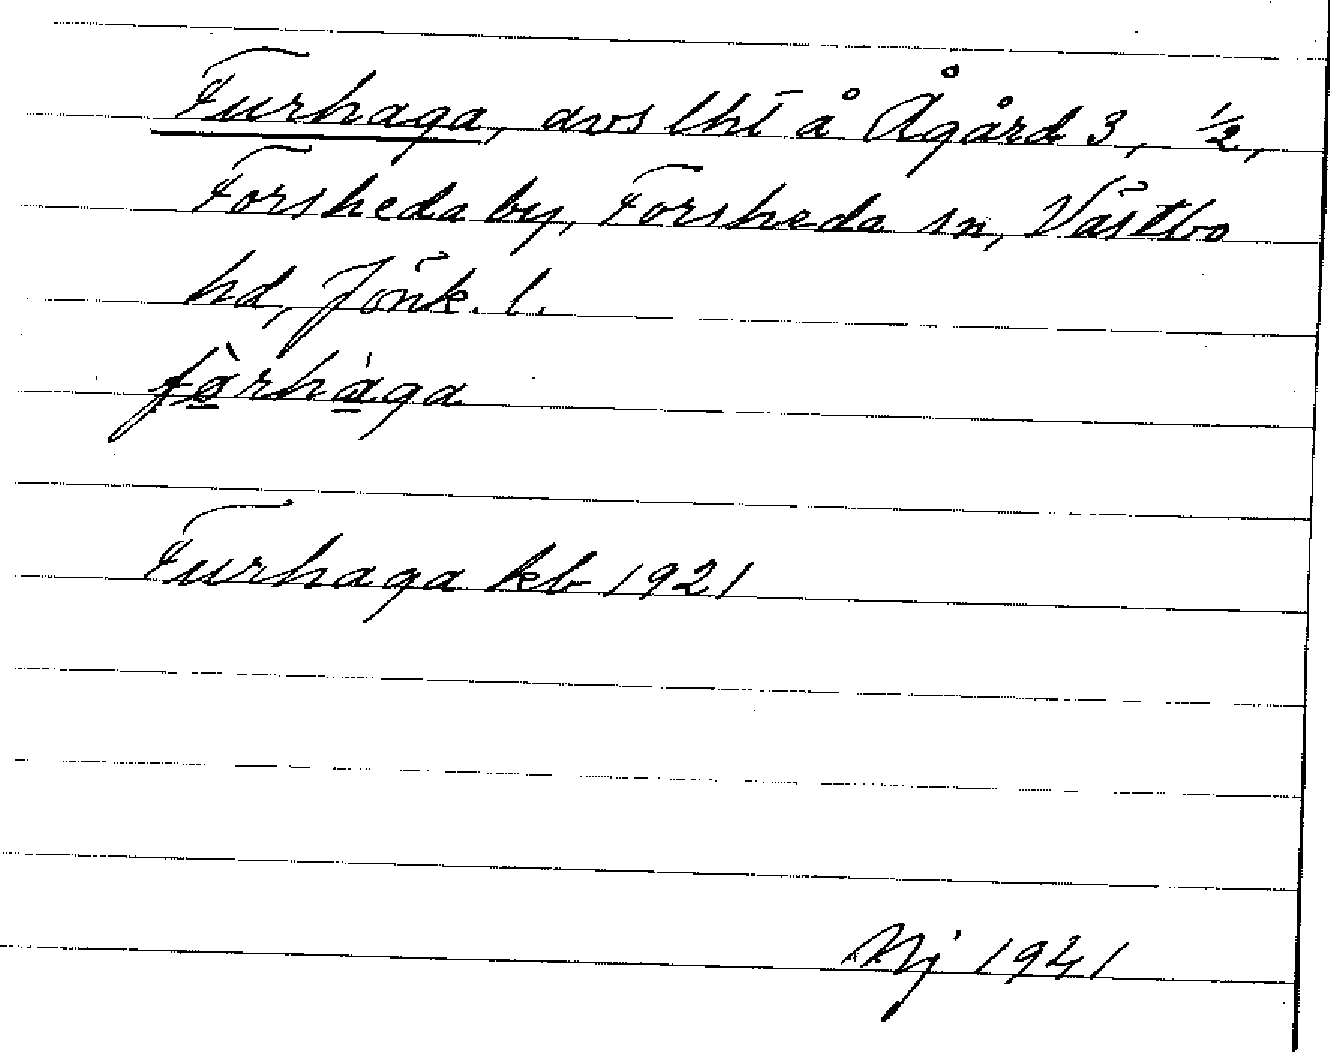 Furhaga, avs lht å Ågård 3, ½,
Forsheda by, Forsheda sn, Västbo
hd, Jönk. l.
Furhaga kb 1921
Nj 1941